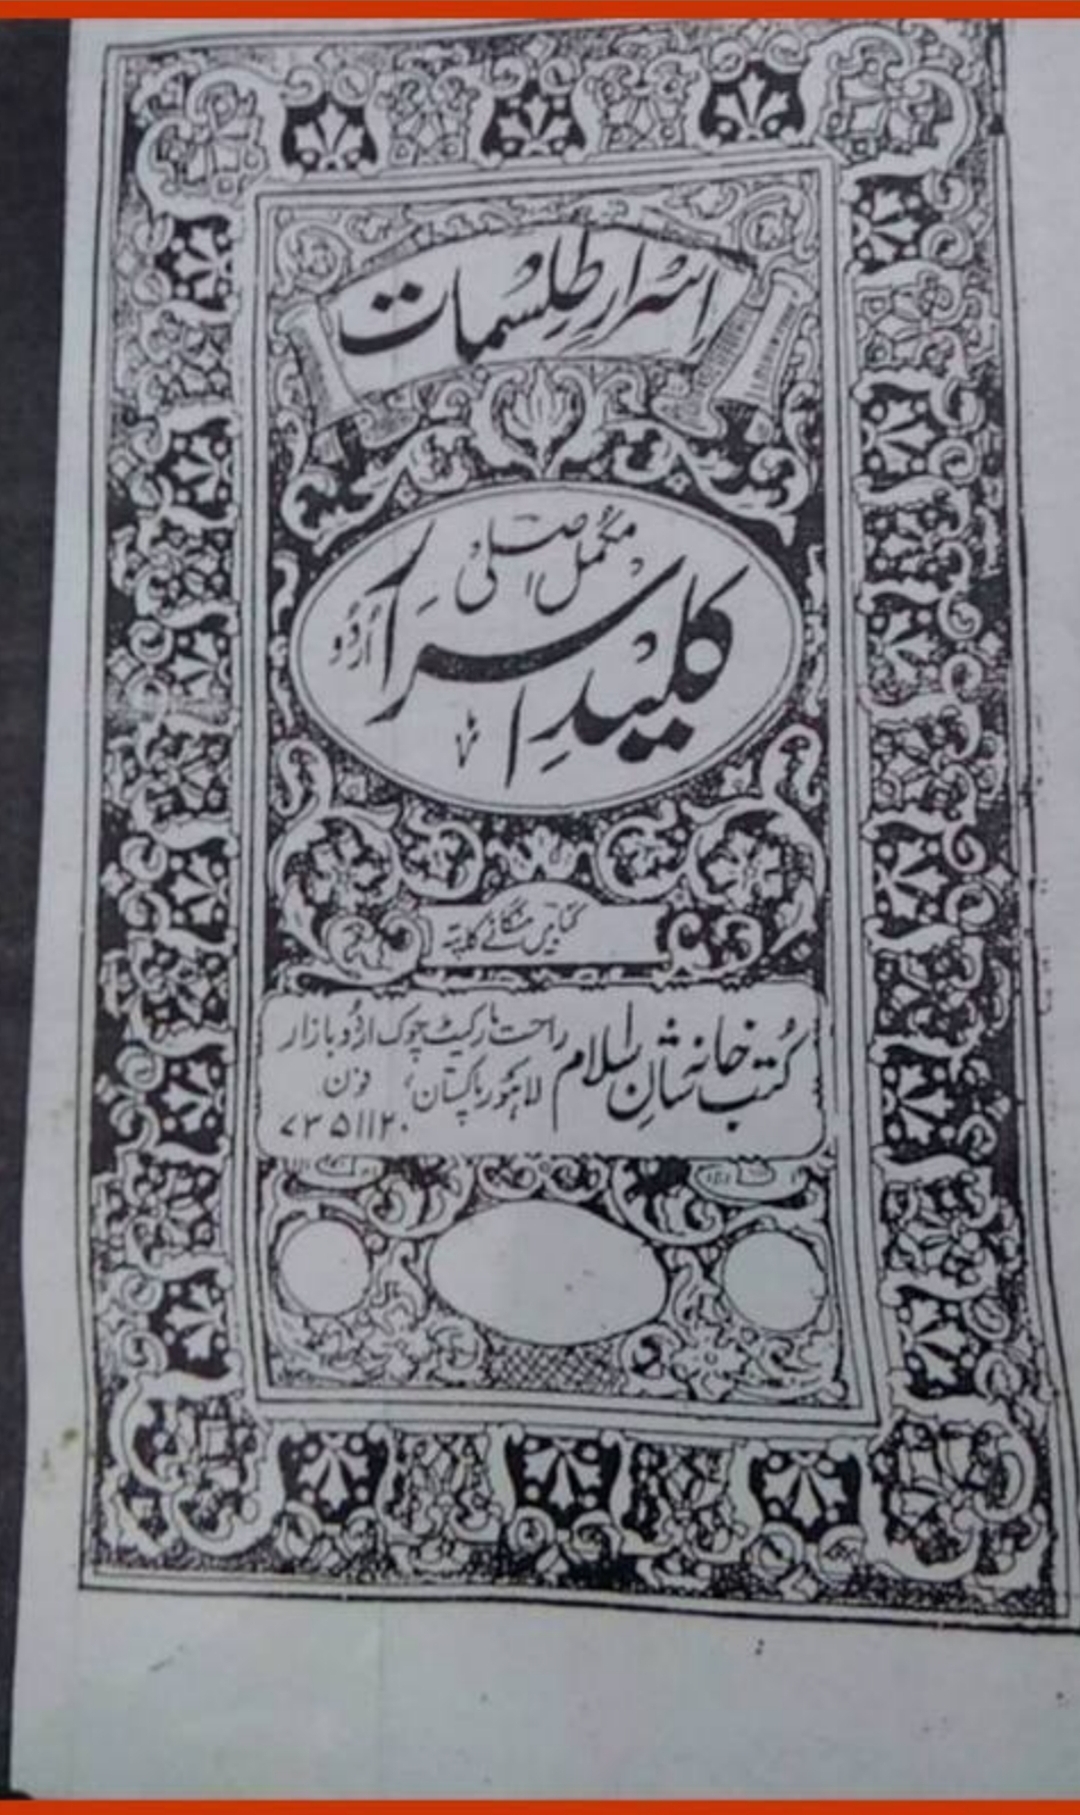 اسرارِ طلسمات
مکمل اصلی
کلیدِ اسرار
اُردو
کتابیں منگانے کا پتہ
کتب خانہ شانِ اسلام
راحت مارکیٹ چوک اردو بازار
لاہور پاکستان، فون
۷۳۵۱۱۲۰